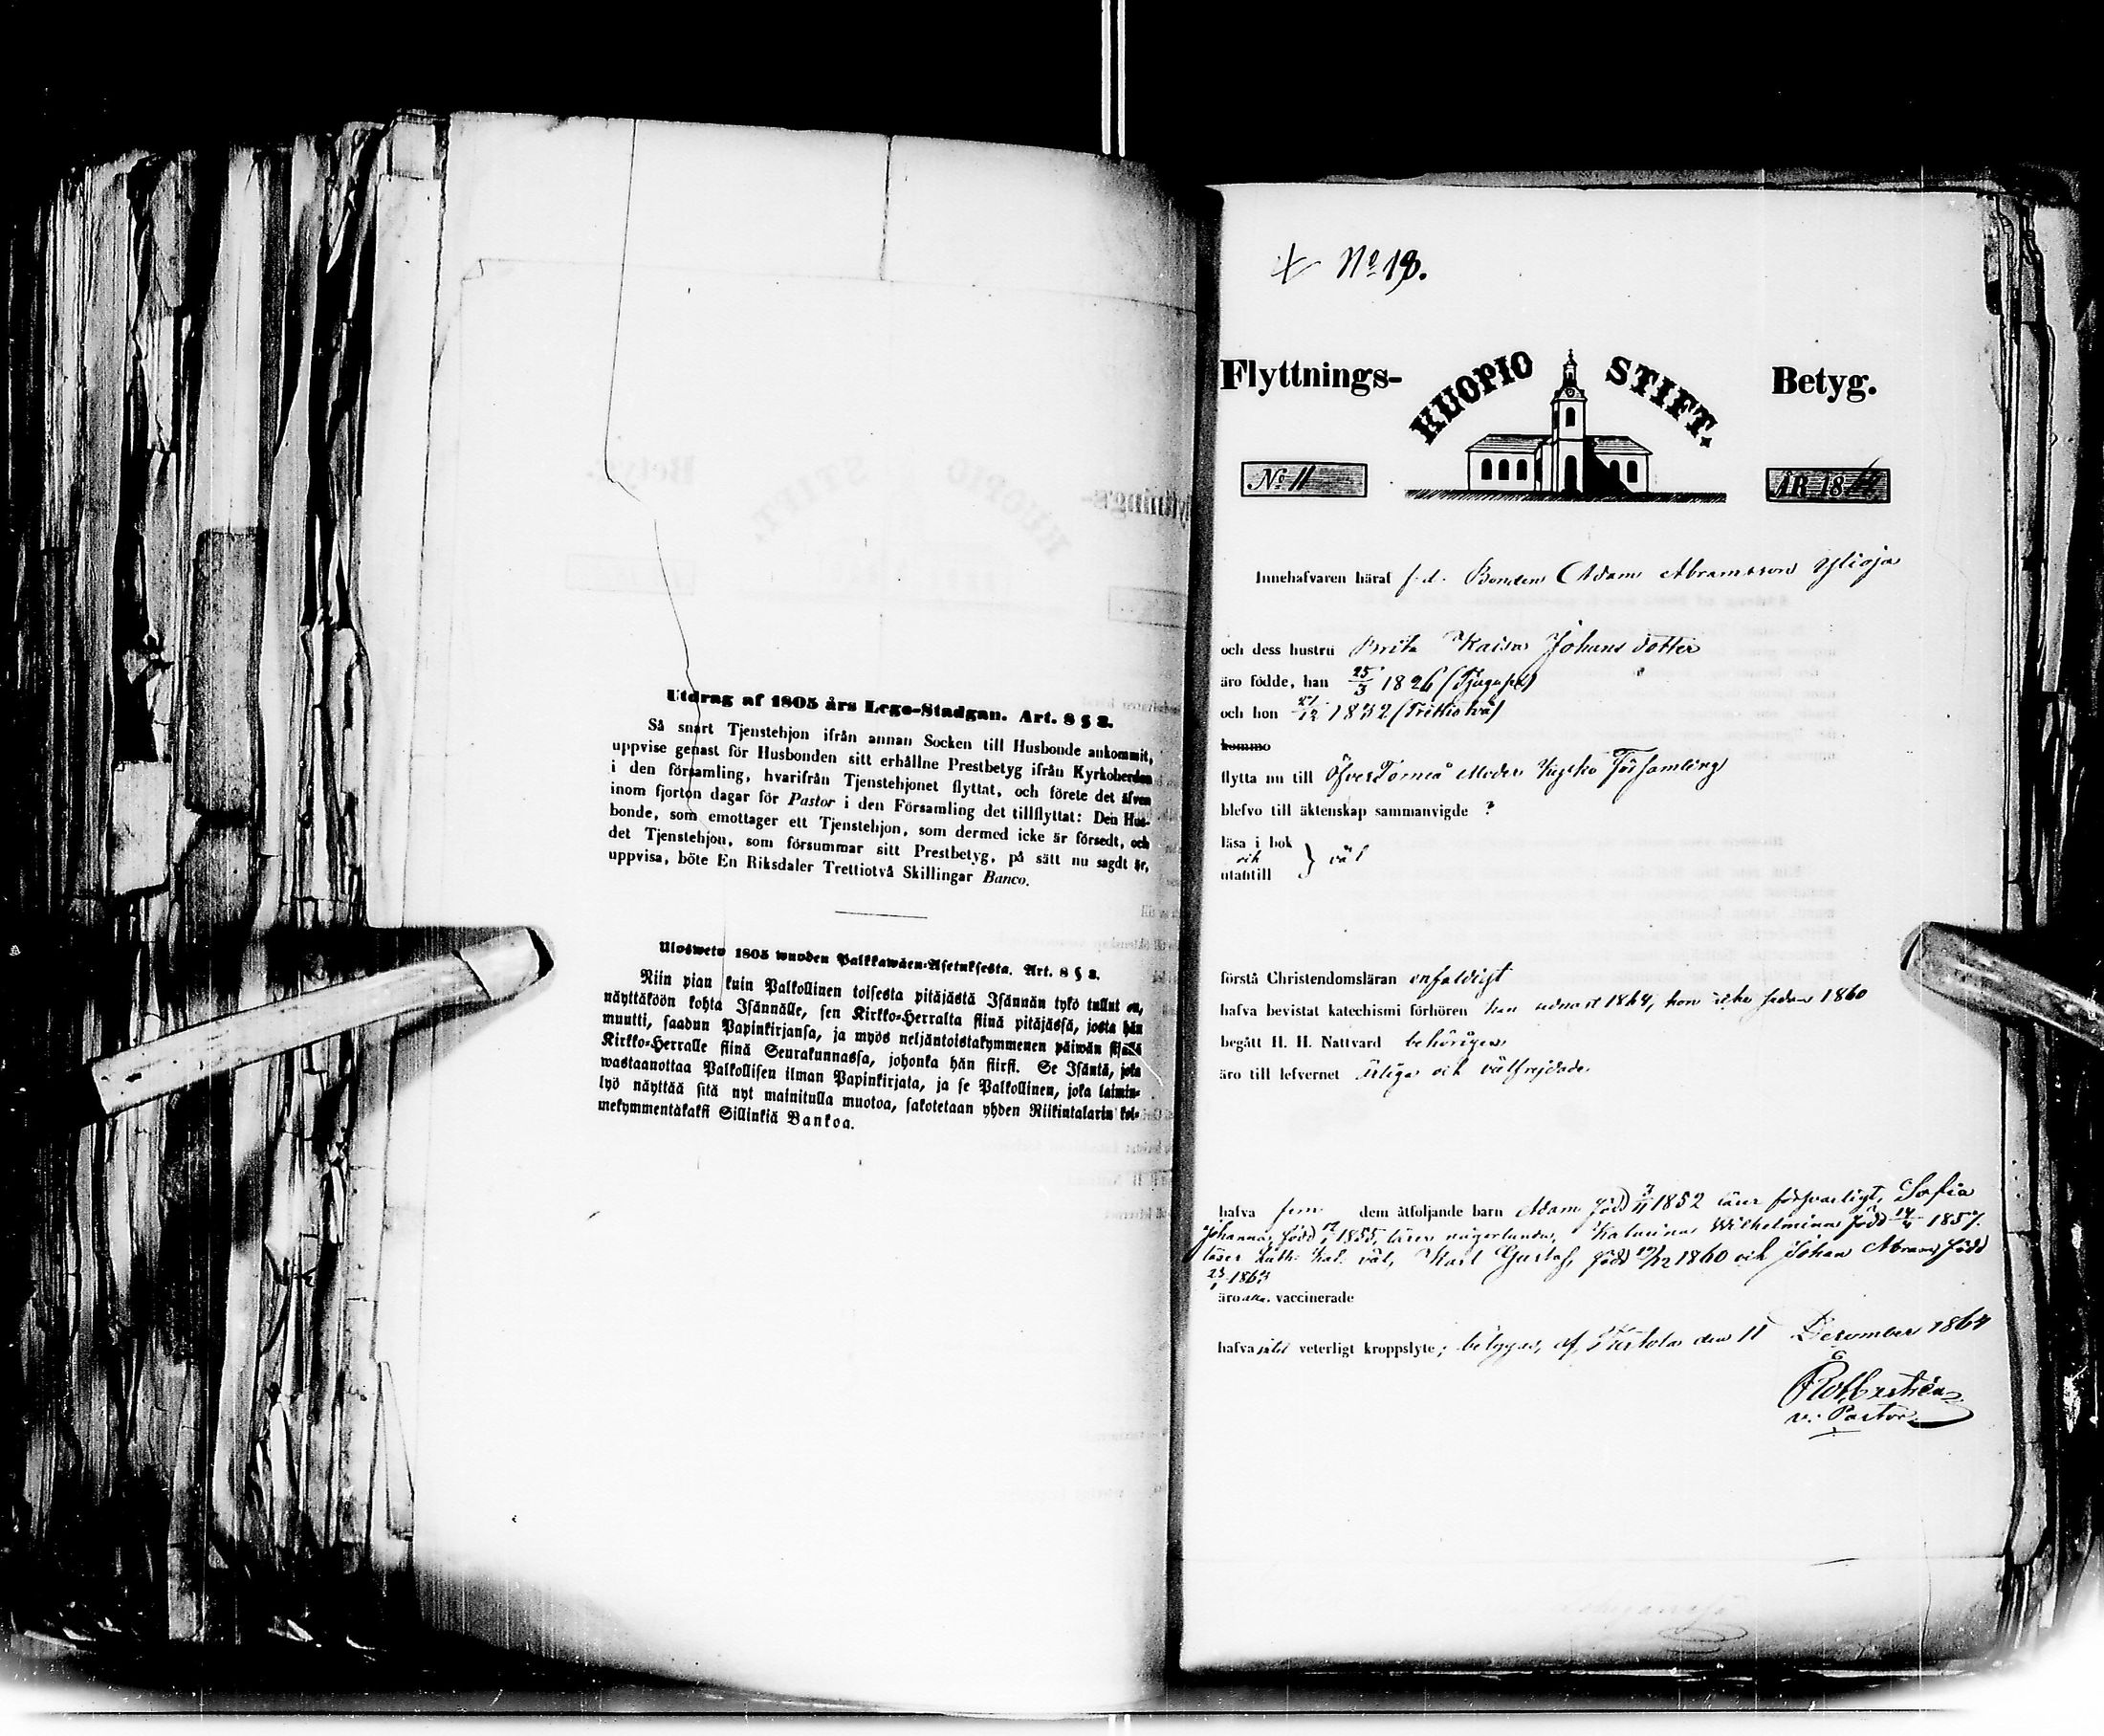 Utdrag af 1805 års Lego-Stadgan. Art. 8 § 8.
Så snart Tjenstehjon ifrån annan Socken till Husbonde ankommit,
uppvise genast för Husbonden sitt erhållne Prestbetyg ifrån Kyrkoherden
i den församling, hvarifrån Tjenstehjonet flyttat, och förete det äfven
inom fjorton dagar för Pastor i den Församling det tillflyttat: Den Hus-
bonde, som emottager ett Tjenstehjon, som dermed icke är försedt, och
det Tjenstehjon, som försummar sitt Prestbetyg, på sätt nu sagdt är,
uppvisa, böte En Riksdaler Trettiotvå Skillingar Banco.
Ulosweto 1805 wuoden Palkkawäen-Asetuksesta. Art. 8 § 8.
Niin pian kuin Palkollinen toisesta pitäjästä Isännän tykö tullut on,
näyttäköön kohta Isännälle, sen Kirkko-Herralta siinä pitäjässä, josta hän
muutti, saadun Papinkirjansa, ja myös neljäntoistakymmenen päiwän sisällä
Kirkko-Herralle siinä Seurakunnassa, johonka hän siirsi. Se Isäntä, joka
wastaanottaa Palkollisen ilman Papinkirjata, ja se Palkollinen, joka laimin-
lyö näyttää sitä nyt mainitulla muotoa, sakotetaan yhden Riikintalarin kol-
mekymmentäkaksi Sillinkiä Bankoa.
No 13.
Flyttnings- KUOPIO STIFT. Betyg.
No 11 ÅR 1864
Innehafvaren häraf f.d. Bonden Adam Abramsson Ylioja
och dess hustru Brita Kaisa Johansdotter
äro födde, han 25/3 1826 (Tjugusex)
och hon 27/12 1832 (Trettiotvå)
komma
flytta nu till Öfver Torneå Moder Kyrko Församling
blefvo till äktenskap sammanvigde ?
läsa i bok
och } väl
utantill
förstå Christendomsläran enfaldigt
hafva bevistat katechismi förhören han senast 1864, hon icke sedan 1860
begått H. H. Nattvard behörigen
äro till lefvernet ärliga och välfrejdade
hafva fem dem åtföljande barn Adam född 3/11 1852 läser försvarligt, Sofia
Johanna, född 1855, läser någorlunda, Katarina Wilhelmina född 14/4 1857
läser Luth. Kat. väl, Karl Gustaf, född 19/12 1860 och Johan Abram född
23/1 1863
äro alla vaccinerade
hafva intet veterligt kroppslyte; betygas, af Turtola den 11 December 1864
v. Pastor